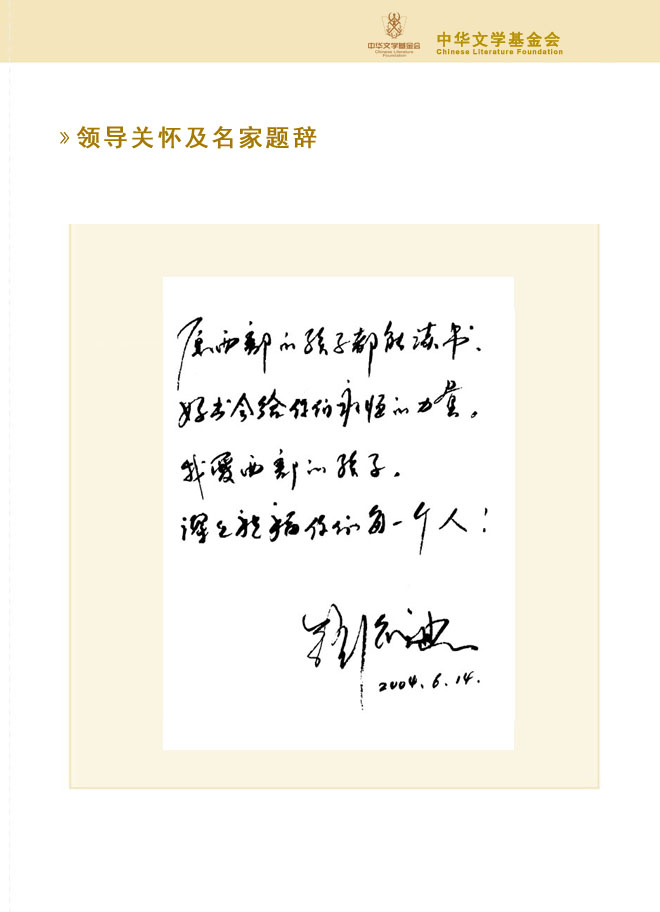 中华文学基金会
Chinese Literature
Foundation
中华文学基金会
Chinese Literature Foundation
» 领导关怀及名家题辞
愿西部的孩子都能读书.
好书会给你们永恒的力量。
我爱西部的孩子.
深立祝福你们每一个人!
2004.6.14.